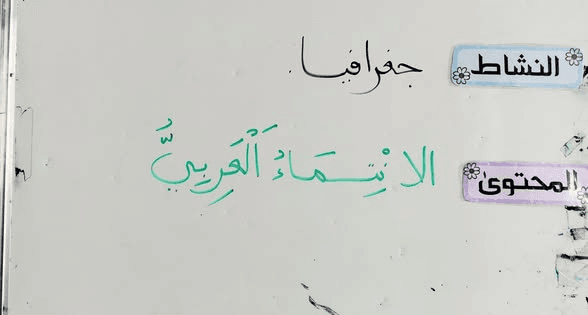 النشاط جغرافيا.
المحتوى الانْتِمَاءُ الْعَرَبِيُّ